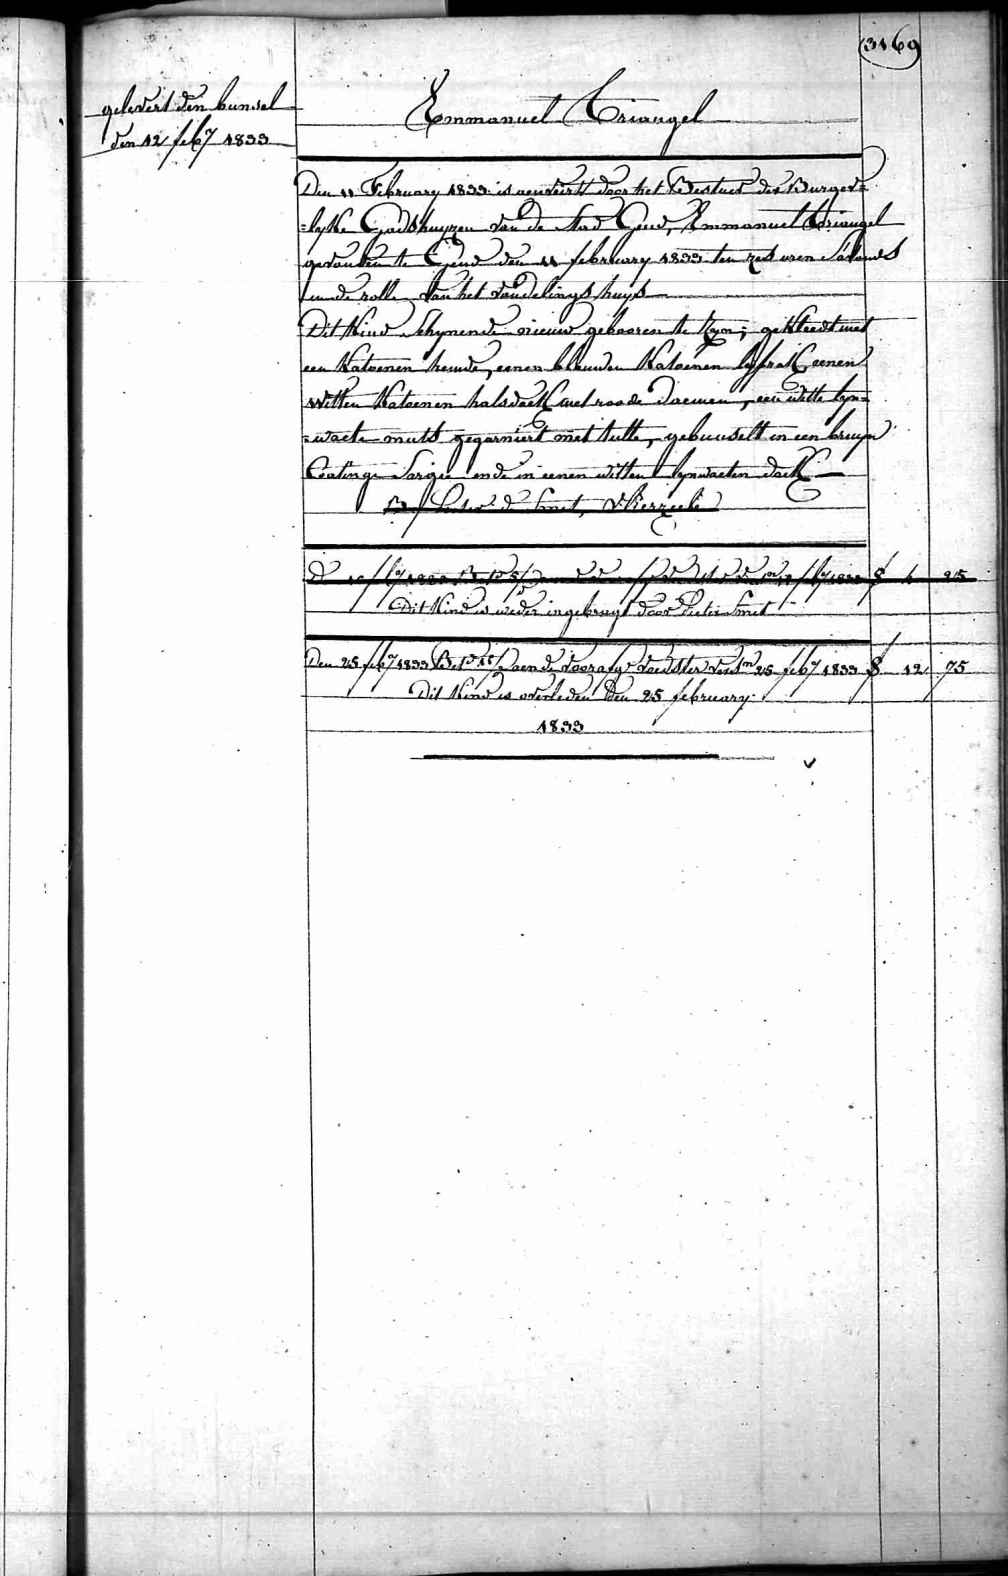 3169
gelevert den bunsel
den 12 feb.y 1833
Emmanuel Triangel
Den 11 February 1833 is aenveirt door het Bestuer der Burger=
=lyke Godshuyzen van de stad Gend, Emmanuel Triangel
gevonden te Gend den 11 february 1833 ten zes uren S'avonds
in de rolle van het vondelings huys
Dit Kind Schynende nieuw gebooren te zyn, gekleedt met
een Katoenen hemde, eenen blauwen Katoenen lyfrok, eenen
witten Katoenen halsdoek met roode bloemen, eene witte lyn=
=waete muts gegarniert met tulle, gebunselt in een bruyn
Coatinge Sargie ende in eenen witten lynwaeten doek
de Smet,
4 25
Dit Kind is weder ingebragt door Pieter Smet
Den 25 feb.y 1833 aen de voorsz. voedster 25 feb.y 1833 12 75
Dit Kind is overleden den 25 february
1833